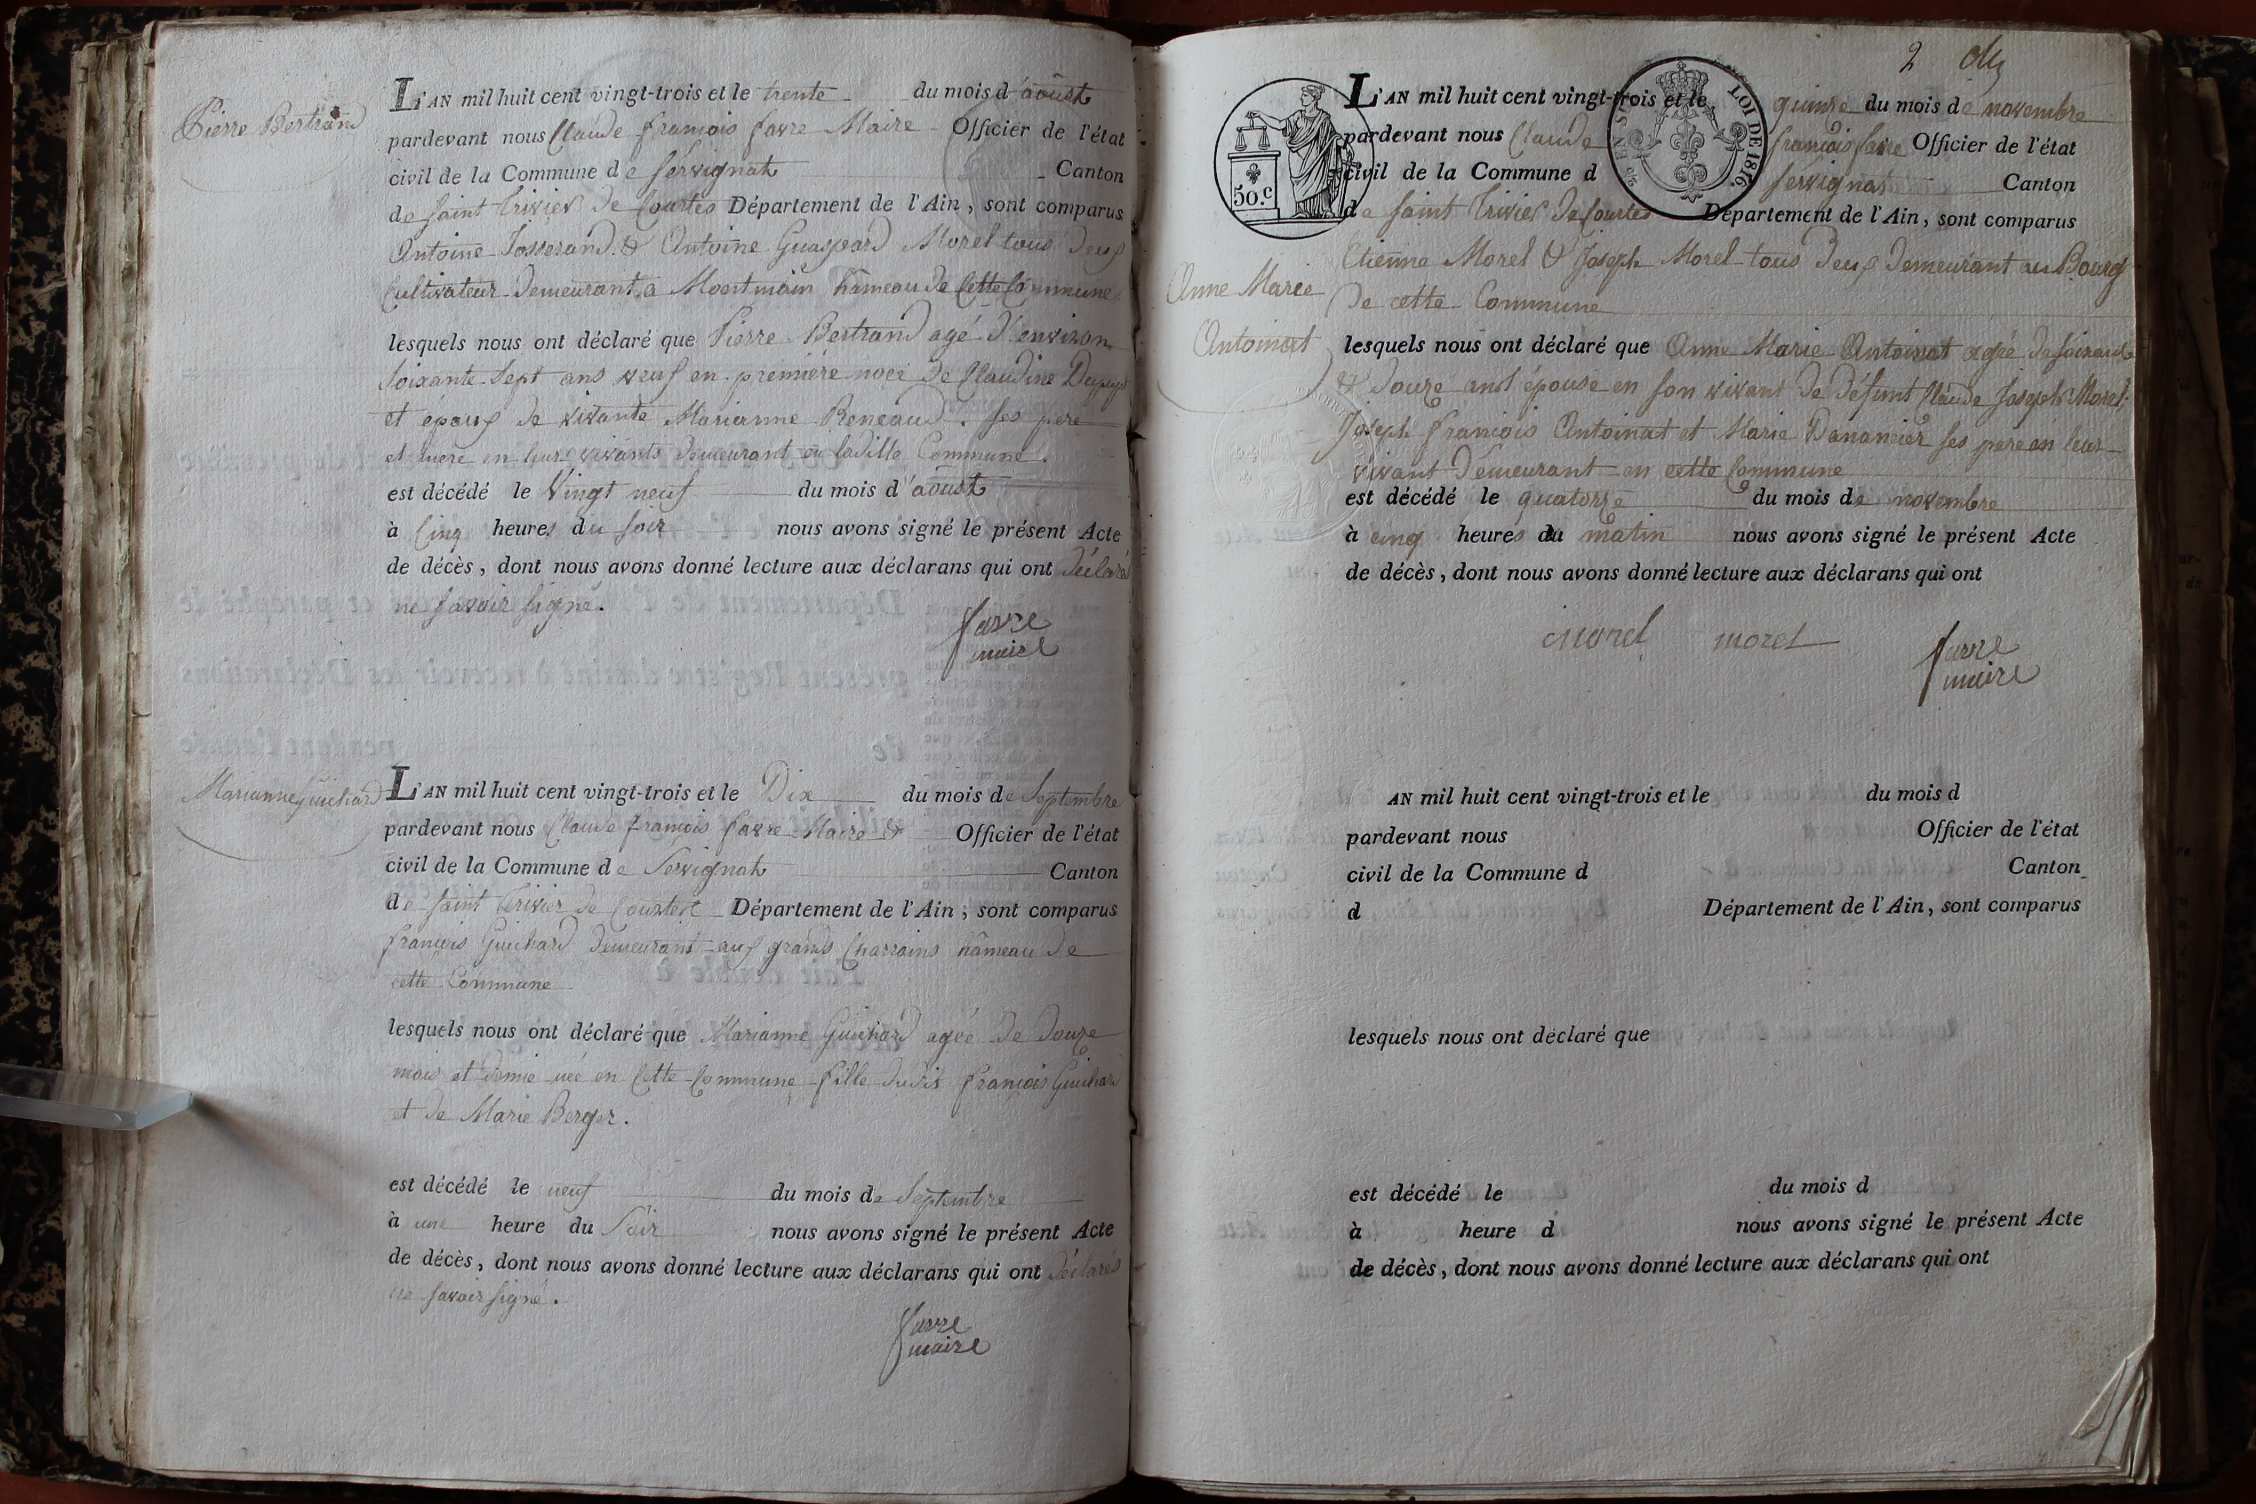 Pierre Bertrand
L'AN mil huit cent vingt-trois et le trente du mois d'aoust
pardevant nous Claude françois favre Maire Officier de l'état
civil de la Commune de Servignat Canton
de saint Trivier De Courtes Département de l'Ain, sont comparus
Antoine Josserand & Antoine Guaspard Morel tous Deux
Cultivateur Demeurant a Montmain hâmeau De Cette Commune
lesquels nous ont déclaré que Pierre Bertrand agé D'environ
Soixante Sept ans veuf en première noce De Claudine
et époux de vivante Marianne Reneaud. Ses pere
et mere en leur vivants Demeurant en ladille Commune.
est décédé le Vingt neuf du mois d'aoust
à Cinq heures du Soir nous avons signé le présent Acte
de décès, dont nous avons donné lecture aux déclarans qui ont Déclaré
ne savoir signé.
favre
maire
Marianne Guichard
L'AN mil huit cent vingt-trois et le Dix du mois de Septembre
pardevant nous Claude françois favre Maire & Officier de l'état
civil de la Commune de Servignat Canton
de saint Trivier de Courtes Département de l'Ain, sont comparus
françois Guichard Demeurant aux grands Charrains hâmeau De
cette Commune
lesquels nous ont déclaré que Marianne Guichard agée De Douze
mois et Demie née en Cette Commune fille Dudis françois Guichard
et de Marie Berger.
est décédé le neuf du mois de Septembre
à une heure du Soir nous avons signé le présent Acte
de décès, dont nous avons donné lecture aux déclarans qui ont Déclarés
ne savoir signé.
favre
maire
2
50.c
LOI DE 1816.
L'AN mil huit cent vingt-trois et le quinze du mois de novembre
pardevant nous Claude françois favre Officier de l'état
civil de la Commune d Servignat Canton
de saint Trivier De Courtes Département de l'Ain, sont comparus
Etienne Morel & Joseph Morel tous Deux Demeurant au Bourg
De cette Commune
Anne Marie
Antoinat
lesquels nous ont déclaré que Anne Marie Antoinat agée De soixante
& Douze ans épouse en son vivant De Défunt Claude Joseph Morel
Joseph François Antoinat et Marie Danancier ses pere en leur
vivant Demeurant en cette Commune
est décédé le quatorze du mois de novembre
à cinq heures du matin nous avons signé le présent Acte
de décès, dont nous avons donné lecture aux déclarans qui ont
morel morel favre
maire
AN mil huit cent vingt-trois et le du mois d
pardevant nous Officier de l'état
civil de la Commune d Canton
d Département de l'Ain, sont comparus
lesquels nous ont déclaré que
est décédé le du mois d
à heure d nous avons signé le présent Acte
de décès, dont nous avons donné lecture aux déclarans qui ont